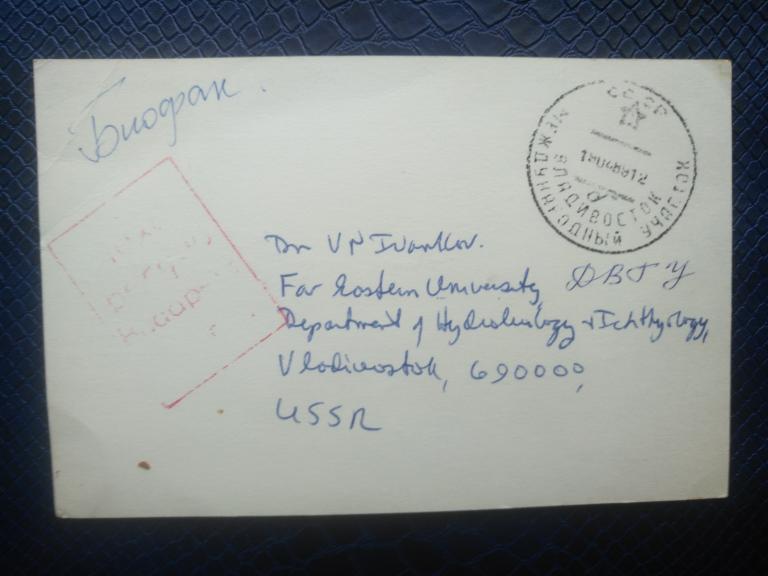 Биофак.
СССР
МЕЖДУНАРОДНЫЙ УЧАСТОК
ВЛАДИВОСТОК
Dr VN Ivankov.
Far Eastern University, ДВГУ
Department of Hydrobiology & Ichthyology,
Vladivostok, 690000,
USSR